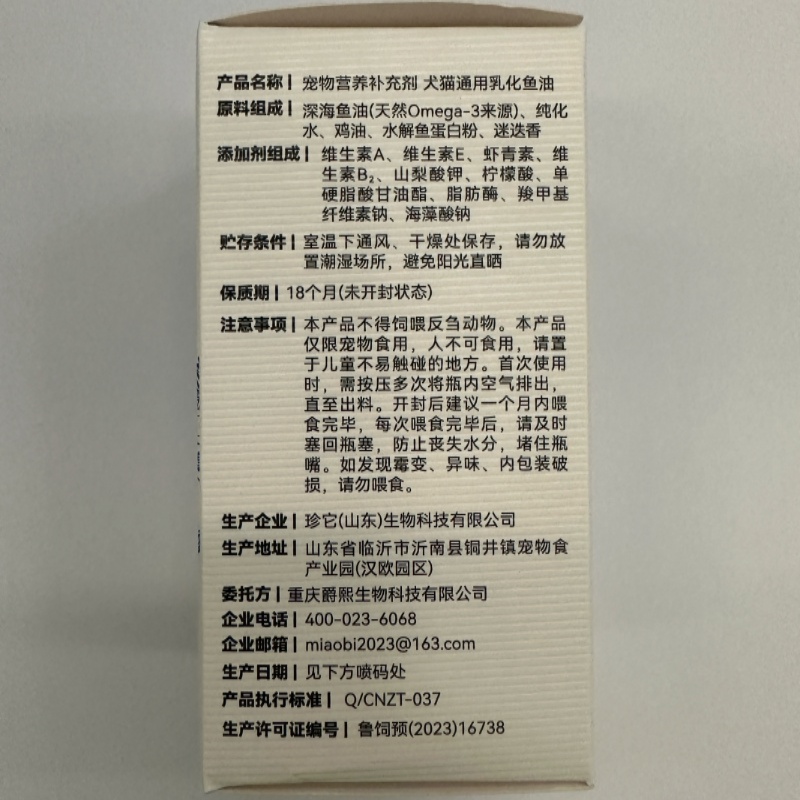 产品名称 | 宠物营养补充剂 犬猫通用乳化鱼油
原料组成 | 深海鱼油(天然Omega-3来源)、纯化
水、鸡油、水解鱼蛋白粉、迷迭香
添加剂组成 | 维生素A、维生素E、虾青素、维
生素B₂、山梨酸钾、柠檬酸、单
硬脂酸甘油酯、脂肪酶、羧甲基
纤维素钠、海藻酸钠
贮存条件 | 室温下通风、干燥处保存，请勿放
置潮湿场所，避免阳光直晒
保质期 | 18个月(未开封状态)
注意事项 | 本产品不得饲喂反刍动物。本产品
仅限宠物食用，人不可食用，请置
于儿童不易触碰的地方。首次使用
时，需按压多次将瓶内空气排出，
直至出料。开封后建议一个月内喂
食完毕，每次喂食完毕后，请及时
塞回瓶塞，防止丧失水分，堵住瓶
嘴。如发现霉变、异味、内包装破
损，请勿喂食。
生产企业 | 珍它(山东)生物科技有限公司
生产地址 | 山东省临沂市沂南县铜井镇宠物食
产业园(汉欧园区)
委托方 | 重庆爵熙生物科技有限公司
企业电话 | 400-023-6068
企业邮箱 | miaobi2023@163.com
生产日期 | 见下方喷码处
产品执行标准 | Q/CNZT-037
生产许可证编号 | 鲁饲预(2023)16738